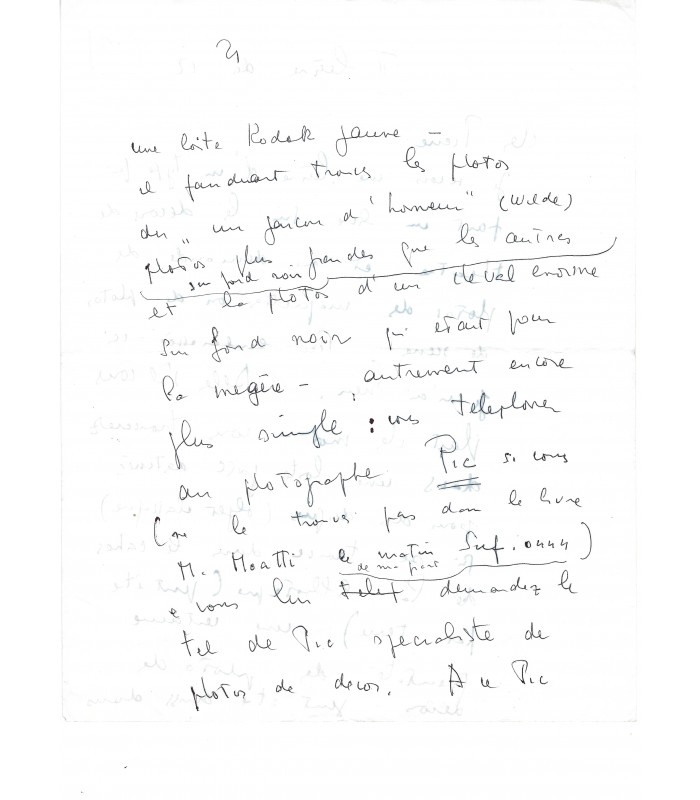 2)
une boite Kodak jaune –
il faudrait trouver les photos
du "un garçon d'honneur" (Wilde)
photos plus grandes que les autres
sur fond noir
et la photos d'un cheval enorme
sur fond noir qui etait pour
la megère – autrement encore
plus simple : vous telephoner
au photographe Pic si vous
(ne le trouvez pas dans le livre
M. Moatti le matin Suf. 0444)
de ma part
e vous lui telef demandez le
tel de Pic specialiste de
photos de decor. A ce Pic